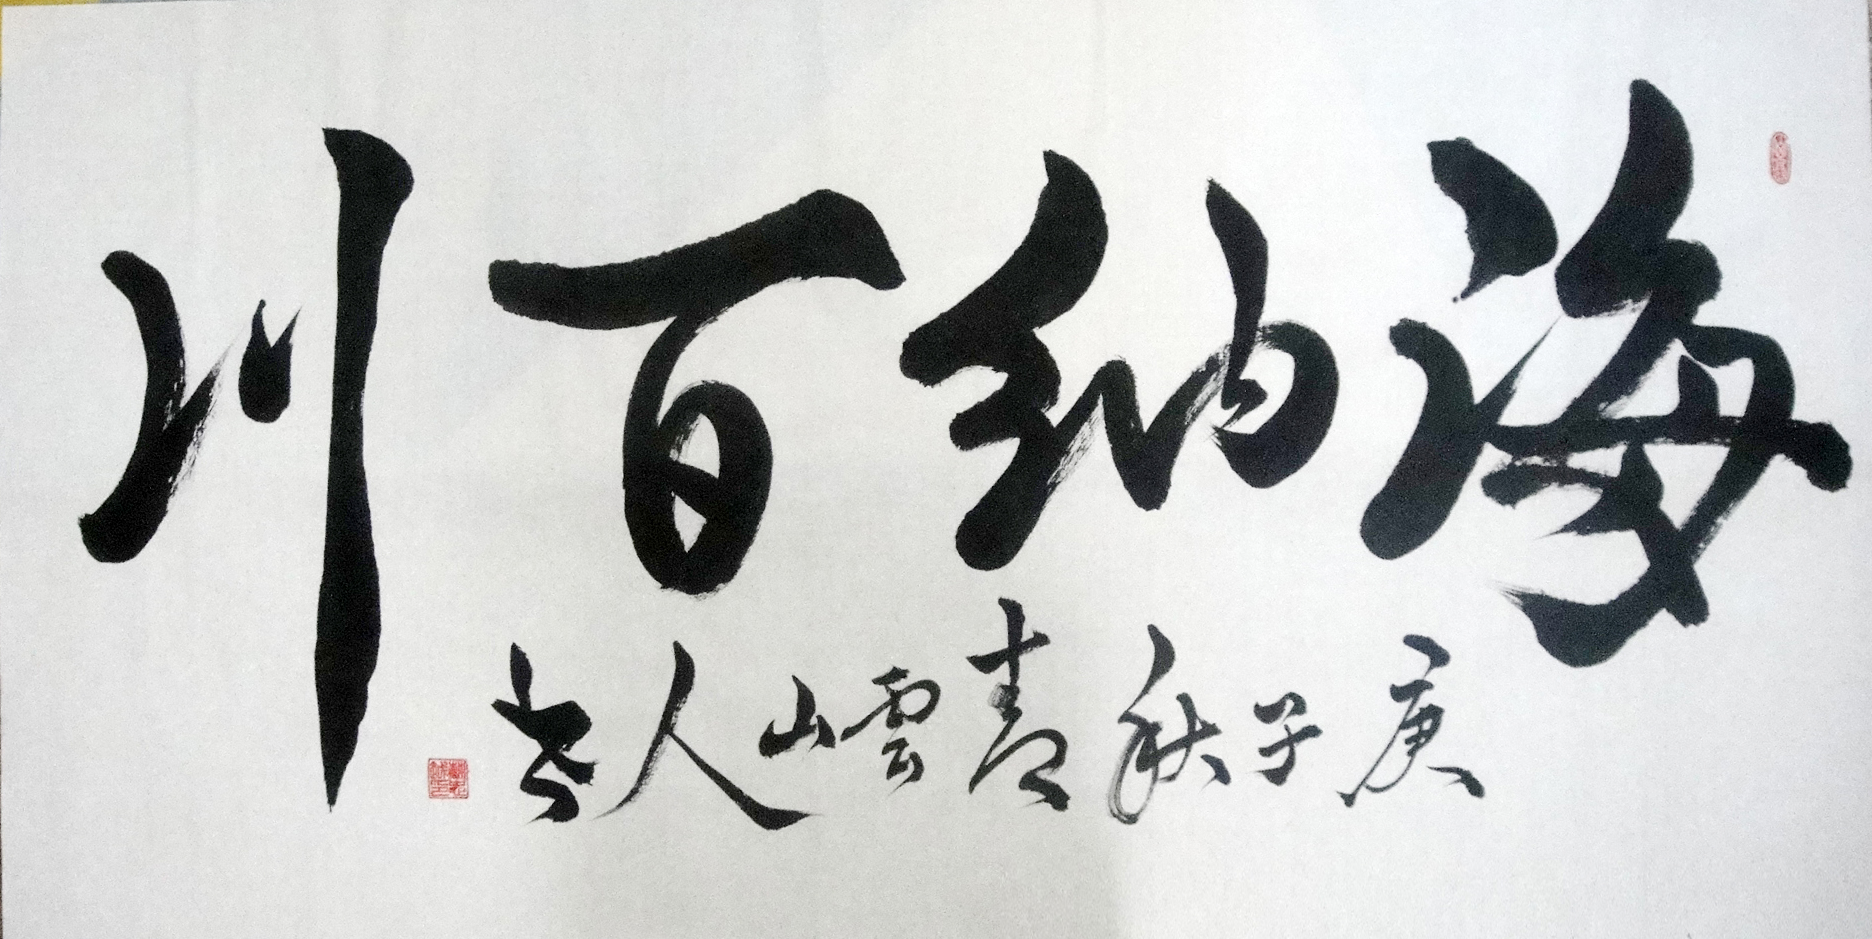 海纳百川
庚子秋青雲山人书